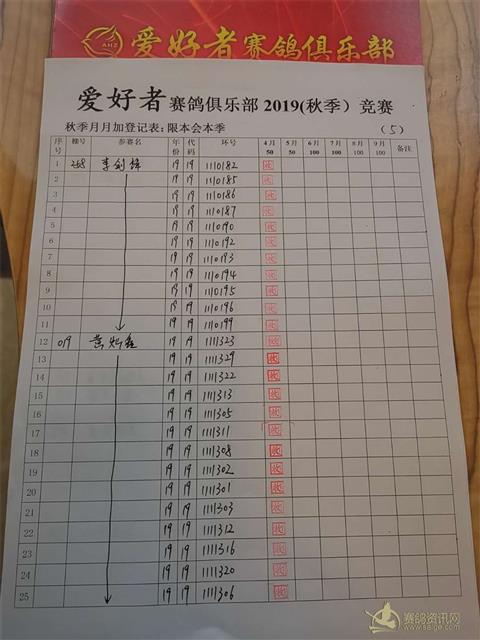 AHZ 爱好者赛鸽俱乐部
爱好者赛鸽俱乐部2019(秋季）竞赛
秋季月月加登记表：限本会本季 （5）
序号 棚号 参赛名 年份 代码 环号 4月50 5月50 6月100 7月100 8月100 9月100 备注
1 268 李剑锋 19 19 1110182 收
2 19 19 1110185 收
3 19 19 1110186 收
4 19 19 1110187 收
5 19 19 1110190 收
6 19 19 1110192 收
7 19 19 1110193 收
8 19 19 1110194 收
9 19 19 1110195 收
10 19 19 1110196 收
11 19 19 1110199 收
12 019 19 19 1111323 收
13 19 19 1111329 收
14 19 19 1111322 收
15 19 19 1111313 收
16 19 19 1111305 收
17 19 19 1111311 收
18 19 19 1111308 收
19 19 19 1111302 收
20 19 19 1111301 收
21 19 19 1111303 收
22 19 19 1111312 收
23 19 19 1111316 收
24 19 19 1111320 收
25 19 19 1111306 收
赛鸽资讯网
www.saige.com